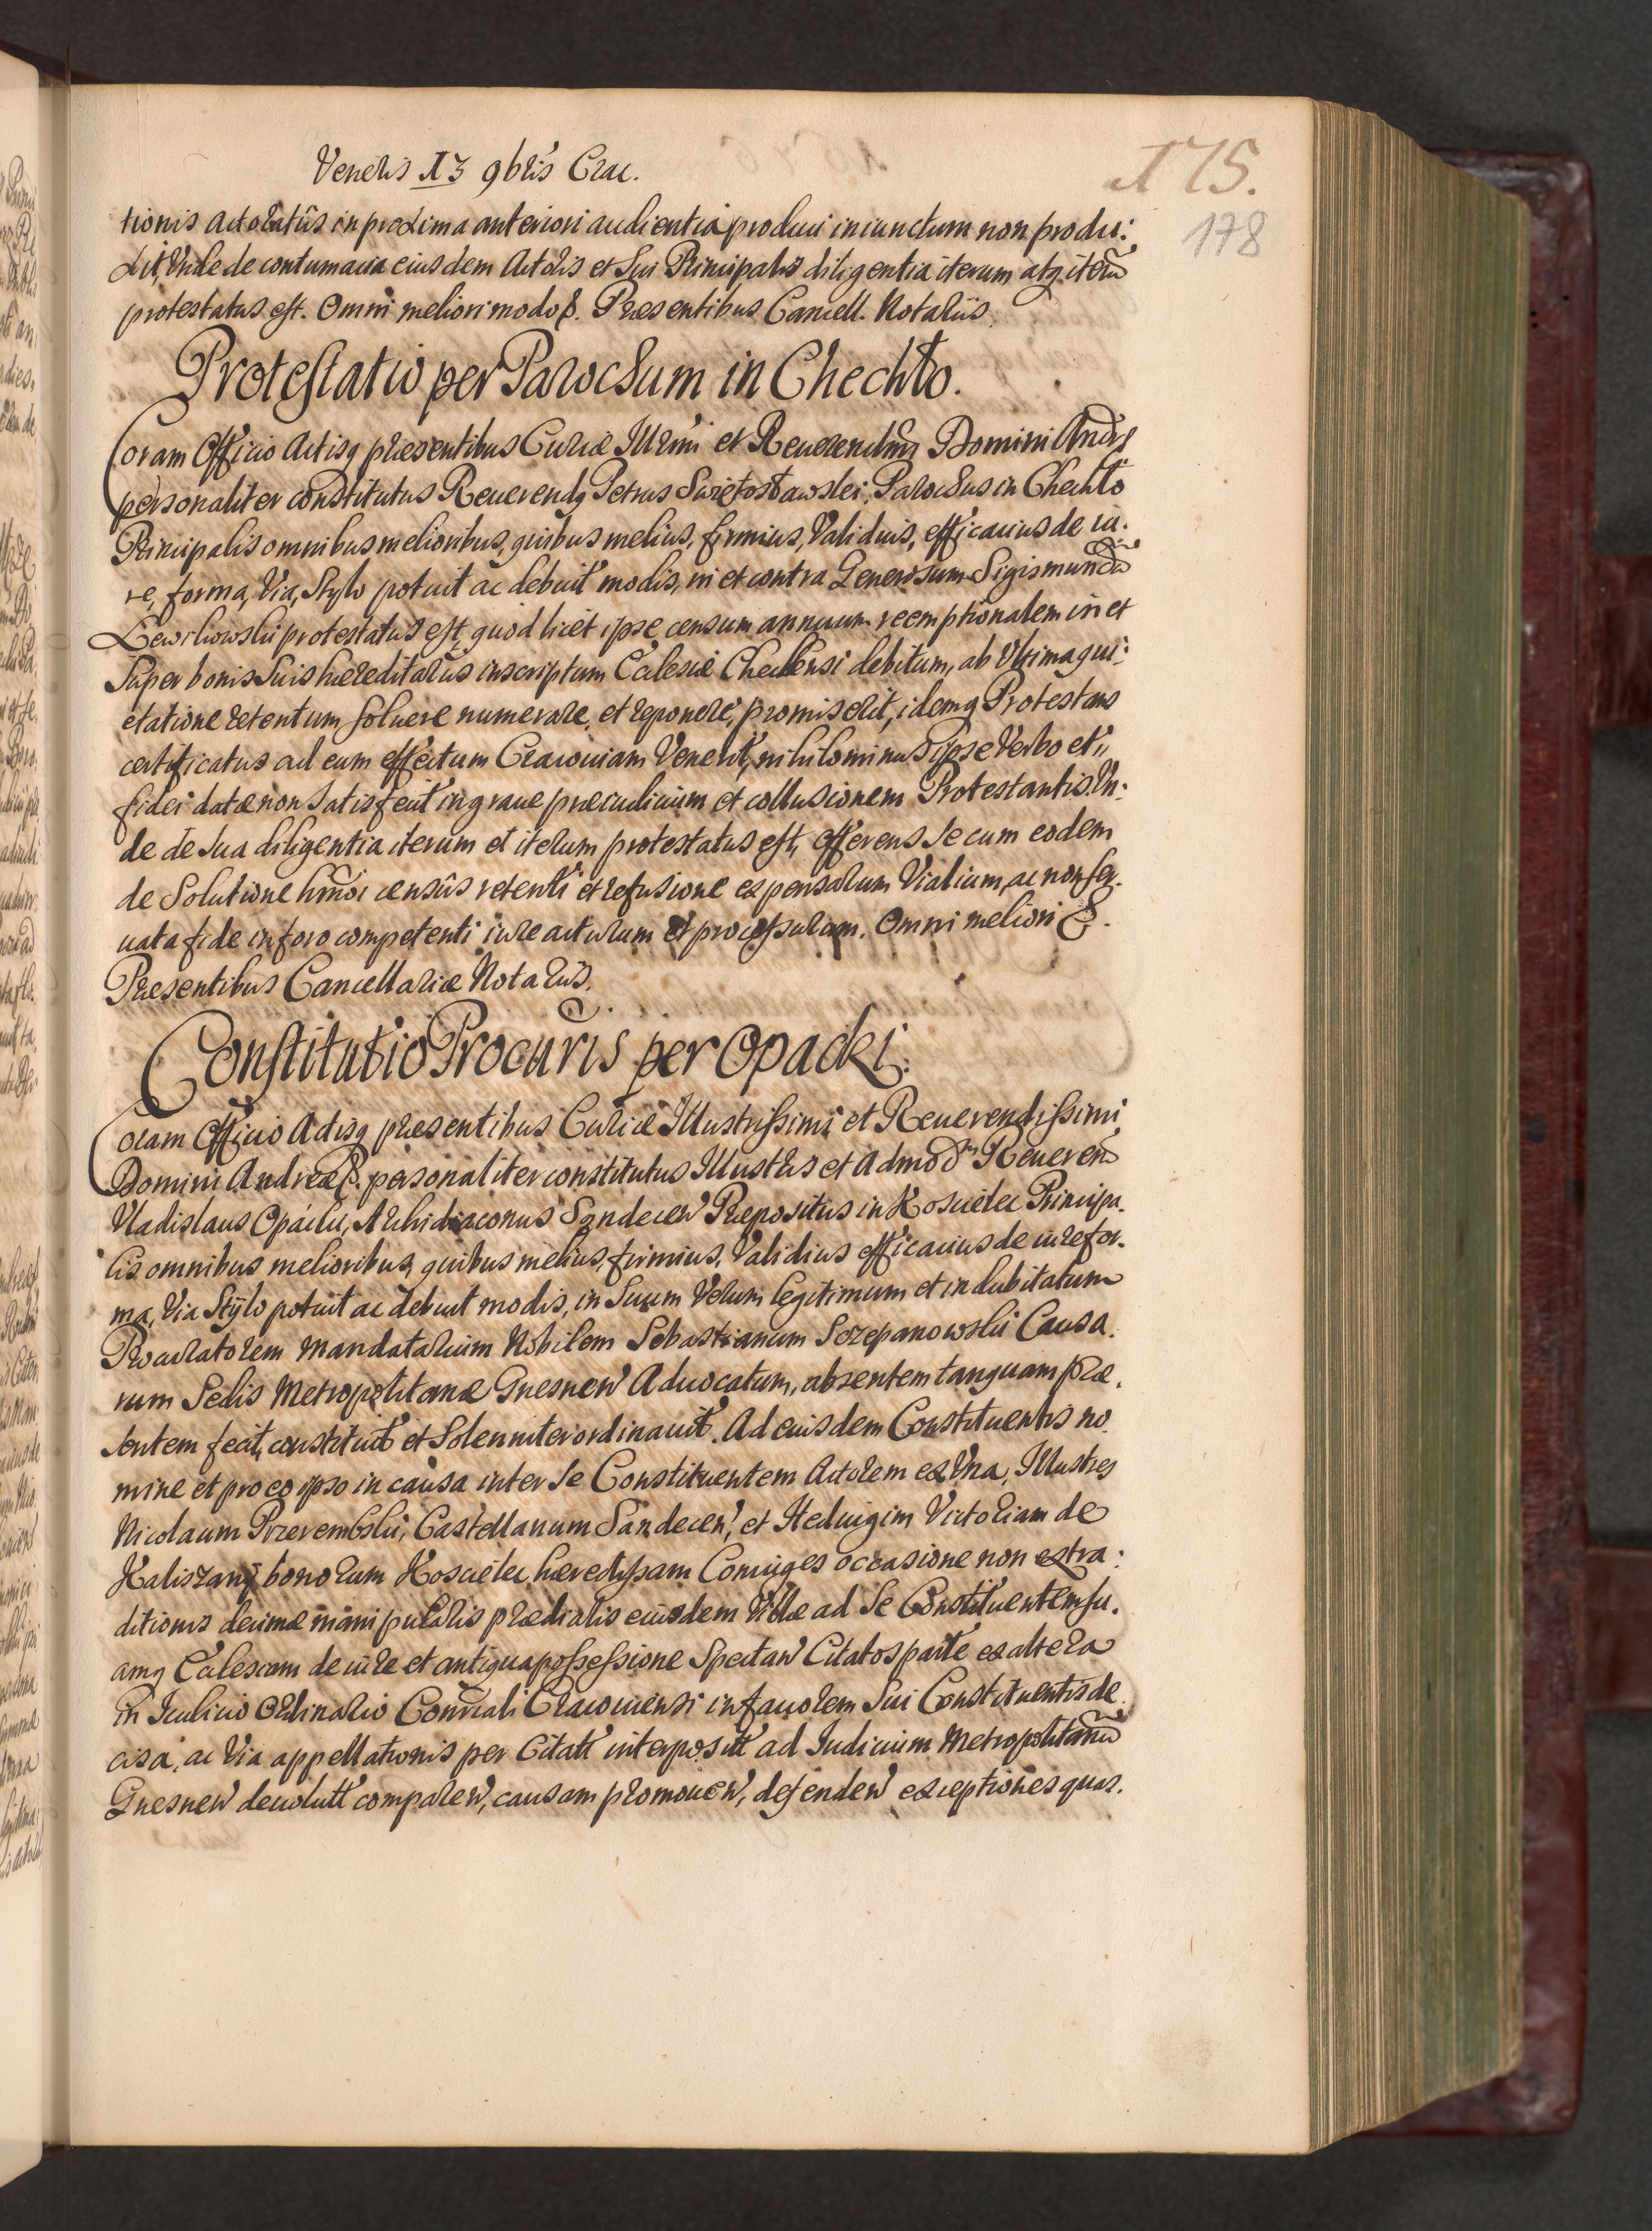 Veneris 13 9bris Crac.
175.
178
tionis Actoratûs in proxima anteriori audientia produci iniunctum non produ:
xit, Unde de contumacia eiusdem Actoris et Sui Principalis diligentia iterum atq iterũ
protestatus est. Omni meliori modo &. Praesentibus Cancell. Notariis.
Protestatio per Parochum in Chechło.
Coram Officio Actisq praesentibus Curiae Illrmi et Reuerendmi Domini Andreae
personaliter constitutus Reuerendq Petrus Swiętosławski, Parochus in Chechło
Principalis omnibus melioribus, quibus melius, firmius, Validius, efficacius de iu:
re, forma, Via, Stylo potuit ac debuit modis, in et contra Generosum Sigismundũ
Lewikowski protestatus est, quod licet ipse censum annuum reemptionalem in et
Super bonis Suis haereditariis inscriptum Ecclesiae Chechlensi debitum, ab Vltima qui:
etatione retentum soluere numerare, et reponere, promiserit, idemq Protestans
certificatus ad eum effectum Cracouiam Venerit, nihilominus ipse Verbo et
fidei datae non Satisfecit in graue praeiudicium et collusionem Protestantis. Vn:
de de Sua diligentia iterum et iterum protestatus est, offerens Se cum eodem
de Solutione hmõi censûs retenti et refusione expensarum Vialium, ac non ser:
uata fide in foro competenti iure acturum et processurum. Omni meliori &.
Praesentibus Cancellariae Notariis.
Constitutio Procuris per Opacki.
Coram Officio Actisq praesentibus Curiae Illustrissimi et Reuerendissimi
Domini Andreae &. personaliter constitutus Illustris et Admodm Reuerend
Vladislaus Opacki, Archidiaconus Sandecen Praepositus in Koscielec Principa:
lis omnibus melioribus, quibus melius, firmius, Validius efficacius de iure for:
ma, Via Stylo potuit ac debuit modis, in Suum Verum legitimum et indubitatum
Procuratorem Mandatarium Nobilem Sebastianum Sczepanowski Causa:
rum Sedis Metropolitanae Gnesnen Aduocatum, absentem tanquam prae:
sentem fecit, constituit et Solenniter ordinauit. Ad eiusdem Constituentis no:
mine et pro eo ipso in causa inter Se Constituentem Actorem ex Vna, Illustres
Nicolaum Przerembski, Castellanum Sandecen, et Heduigim Victoriam de
Kaliszany bonorum Koscielec haeredissam Coniuges occasione non extra:
ditionis decimae manipularis praedialis eiusdem Villae ad Se Constituentem su:
amq Ecclesiam de iure et antiqua possessione Spectan Citatos parte ex altera
in Iudicio Ordinario Consrali Cracouiensi in fauorem Sui Constituentis de:
cisa, ac Via appellationis per Citatt interposit ad Iudicium Metropolitanũ
Gnesnen deuolutt comparen, causam promouen, defenden exceptiones quas: